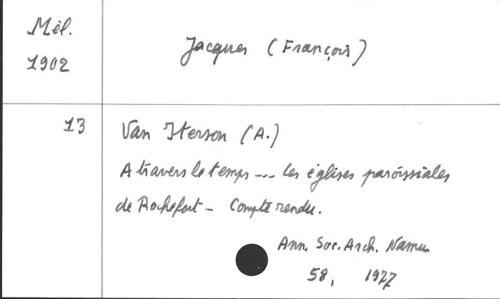 Mél.
1902
Jacques (François)
13
Van Iterson (A.)
A travers le temps --- Les églises paroissiales
de Rochefort - Compte rendu.
Ann. Soc. Arch. Namur
58, 1977